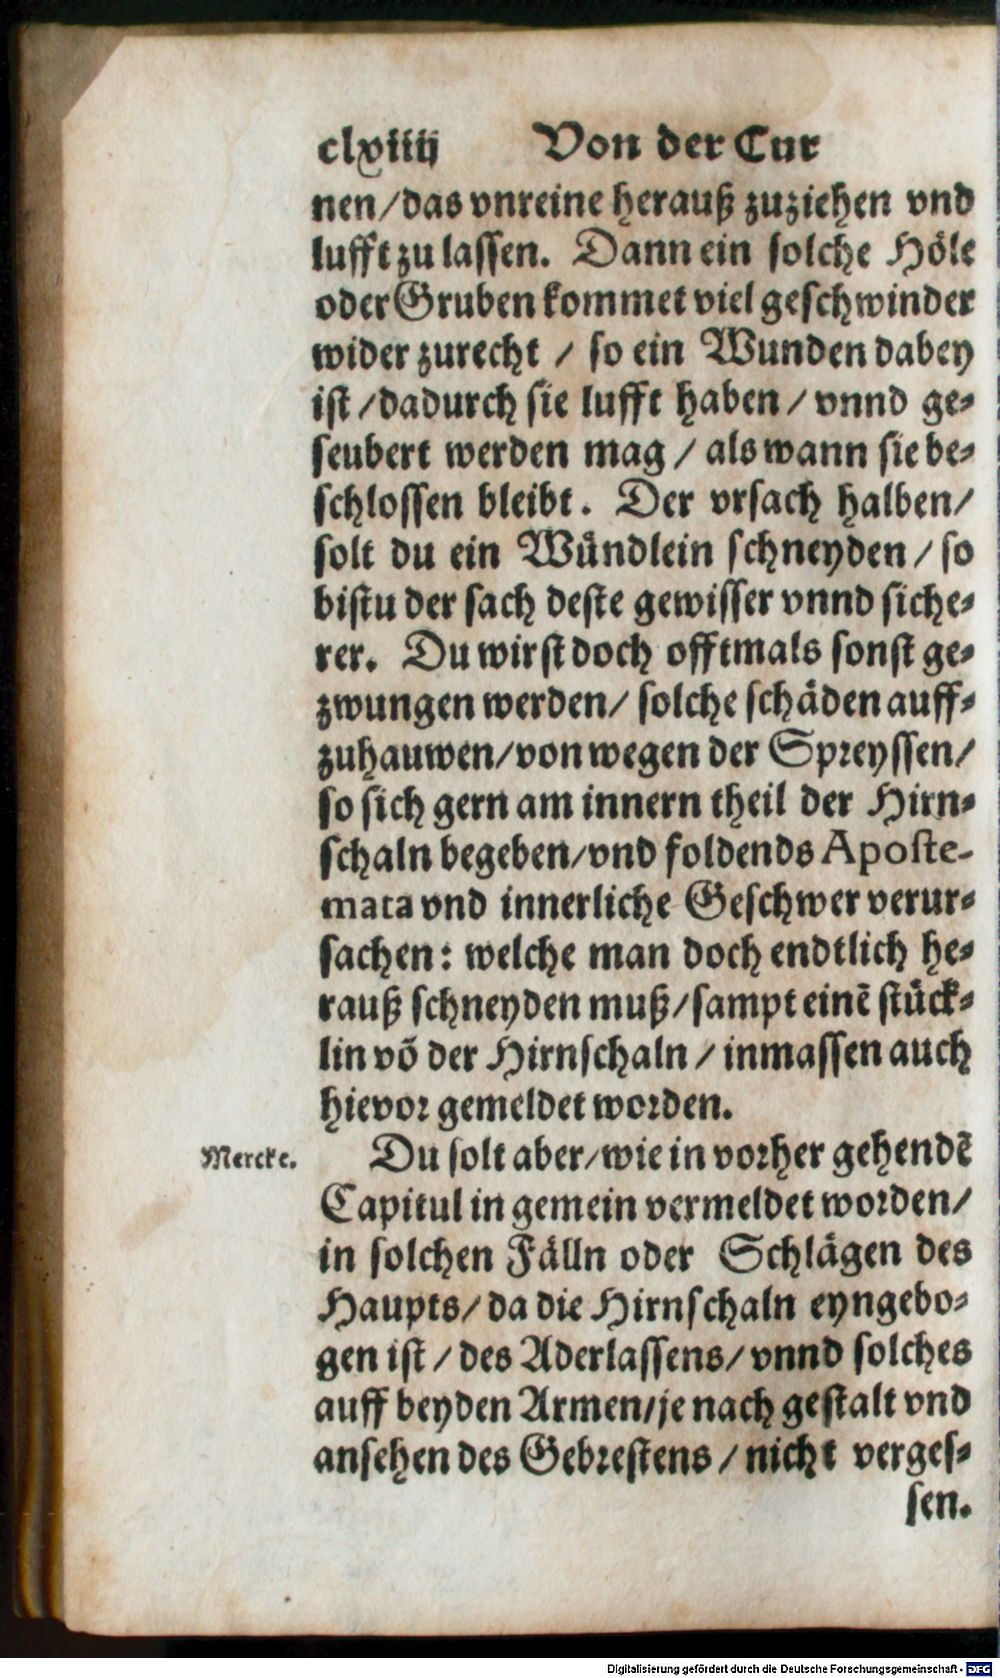 clxiiij Von der Cur
nen/das vnreine herauß zuziehen vnd
lufft zu lassen. Dann ein solche Höle
oder Gruben kommet viel geschwinder
wider zurecht / so ein Wunden dabey
ist /dadurch sie lufft haben / vnnd ge⸗
seubert werden mag / als wann sie be⸗
schlossen bleibt. Der vrsach halben/
solt du ein Wündlein schneyden / so
bistu der sach deste gewisser vnnd siche⸗
rer. Du wirst doch offtmals sonst ge⸗
zwungen werden/ solche schäden auff⸗
zuhauwen/von wegen der Spreyssen/
so sich gern am innern theil der Hirn⸗
schaln begeben/vnd foldends Aposte-
mata vnd innerliche Geschwer verur⸗
sachen: welche man doch endtlich he⸗
rauß schneyden muß/sampt einẽ stück⸗
lin võ der Hirnschaln / inmassen auch
hievor gemeldet worden.
Mercke. Du solt aber/wie in vorher gehendẽ
Capitul in gemein vermeldet worden/
in solchen Fälln oder Schlägen des
Haupts/da die Hirnschaln eyngebo⸗
gen ist / des Aderlassens/ vnnd solches
auff beyden Armen/je nach gestalt vnd
ansehen des Gebrestens / nicht verges⸗
sen.
Digitalisierung gefördert durch die Deutsche Forschungsgemeinschaft - DFG